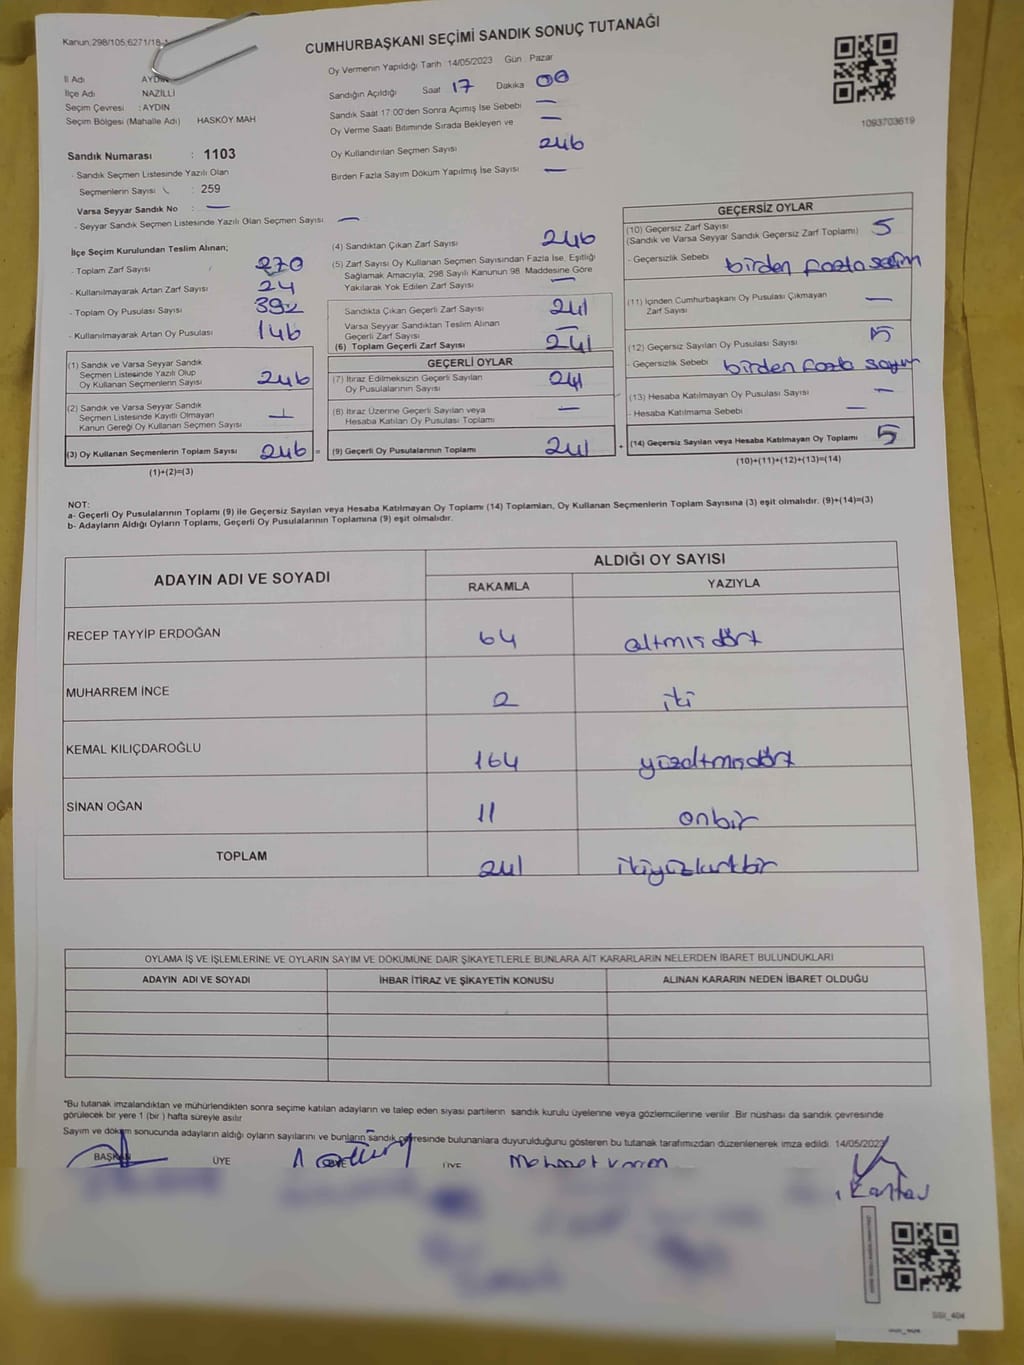 Kanun:298/105;6271/18-
CUMHURBAŞKANI SEÇİMİ SANDIK SONUÇ TUTANAĞI
İl Adı AYDIN
İlçe Adı NAZİLLİ
Seçim Çevresi : AYDIN
Seçim Bölgesi (Mahalle Adı) HASKÖY MAH
Oy Vermenin Yapıldığı Tarih : 14/05/2023 Gün : Pazar
Sandığın Açıldığı Saat 17 Dakika 00
Sandık Saat 17:00'den Sonra Açımış İse Sebebi —
Oy Verme Saati Bitiminde Sırada Bekleyen ve —
Oy Kullandırılan Seçmen Sayısı 246
Birden Fazla Sayım Döküm Yapılmış İse Sayısı —
1093703619
Sandık Numarası : 1103
- Sandık Seçmen Listesinde Yazılı Olan
Seçmenlerin Sayısı : 259
Varsa Seyyar Sandık No : —
- Seyyar Sandık Seçmen Listesinde Yazılı Olan Seçmen Sayısı : —
İlçe Seçim Kurulundan Teslim Alınan;
- Toplam Zarf Sayısı 270
- Kullanılmayarak Artan Zarf Sayısı 24
- Toplam Oy Pusulası Sayısı 392
- Kullanılmayarak Artan Oy Pusulası 146
(1) Sandık ve Varsa Seyyar Sandık
Seçmen Listesinde Yazılı Olup
Oy Kullanan Seçmenlerin Sayısı 246
(2) Sandık ve Varsa Seyyar Sandık
Seçmen Listesinde Kayıtlı Olmayan
Kanun Gereği Oy Kullanan Seçmen Sayısı
(3) Oy Kullanan Seçmenlerin Toplam Sayısı 246 =
(1)+(2)=(3)
(4) Sandıktan Çıkan Zarf Sayısı 246
(5) Zarf Sayısı Oy Kullanan Seçmen Sayısından Fazla İse, Eşitliği
Sağlamak Amacıyla, 298 Sayılı Kanunun 98. Maddesine Göre
Yakılarak Yok Edilen Zarf Sayısı —
Sandıkta Çıkan Geçerli Zarf Sayısı 241
Varsa Seyyar Sandıktan Teslim Alınan
Geçerli Zarf Sayısı —
(6) Toplam Geçerli Zarf Sayısı 241
GEÇERLİ OYLAR
(7) İtiraz Edilmeksizin Geçerli Sayılan
Oy Pusulalarının Sayısı 241
(8) İtiraz Üzerine Geçerli Sayılan veya
Hesaba Katılan Oy Pusulası Toplamı —
(9) Geçerli Oy Pusulalarının Toplamı 241 +
GEÇERSİZ OYLAR
(10) Geçersiz Zarf Sayısı
(Sandık ve Varsa Seyyar Sandık Geçersiz Zarf Toplamı) 5
- Geçersizlik Sebebi birden fazla seçim
(11) İçinden Cumhurbaşkanı Oy Pusulası Çıkmayan
Zarf Sayısı —
(12) Geçersiz Sayılan Oy Pusulası Sayısı 5
- Geçersizlik Sebebi birden fazla
(13) Hesaba Katılmayan Oy Pusulası Sayısı —
- Hesaba Katılmama Sebebi —
(14) Geçersiz Sayılan veya Hesaba Katılmayan Oy Toplamı 5
(10)+(11)+(12)+(13)=(14)
NOT:
a- Geçerli Oy Pusulalarının Toplamı (9) ile Geçersiz Sayılan veya Hesaba Katılmayan Oy Toplamı (14) Toplamları, Oy Kullanan Seçmenlerin Toplam Sayısına (3) eşit olmalıdır. (9)+(14)=(3)
b- Adayların Aldığı Oyların Toplamı, Geçerli Oy Pusulalarının Toplamına (9) eşit olmalıdır.
ADAYIN ADI VE SOYADI
ALDIĞI OY SAYISI
RAKAMLA YAZIYLA
RECEP TAYYİP ERDOĞAN 64 altmışdört
MUHARREM İNCE 2 iki
KEMAL KILIÇDAROĞLU 164 yüzaltmışdört
SİNAN OĞAN 11 onbir
TOPLAM 241 ikiyüzkırkbir
OYLAMA İŞ VE İŞLEMLERİNE VE OYLARIN SAYIM VE DÖKÜMÜNE DAİR ŞİKAYETLERLE BUNLARA AİT KARARLARIN NELERDEN İBARET BULUNDUKLARI
ADAYIN ADI VE SOYADI İHBAR İTİRAZ VE ŞİKAYETİN KONUSU ALINAN KARARIN NEDEN İBARET OLDUĞU
*Bu tutanak imzalandıktan ve mühürlendikten sonra seçime katılan adayların ve talep eden siyasi partilerin sandık kurulu üyelerine veya gözlemcilerine verilir .Bir nüshası da sandık çevresinde
görülecek bir yere 1 (bir ) hafta süreyle asılır
Sayım ve döküm sonucunda adayların aldığı oyların sayılarını ve bunların sandık çevresinde bulunanlara duyurulduğunu gösteren bu tutanak tarafımızdan düzenlenerek imza edildi. 14/05/2023
BAŞKAN ÜYE ÜYE
SSI_404